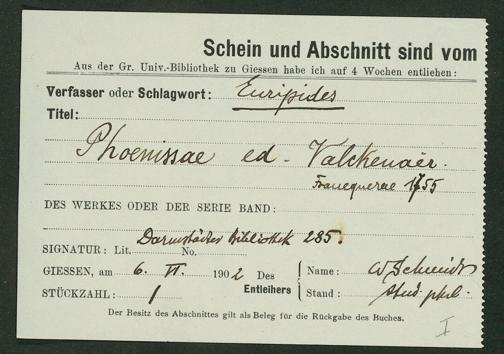 Schein und Abschnitt sind vom
Aus der Gr. Univ.-Bibliothek zu Giessen habe ich auf 4 Wochen entliehen:
Verfasser oder Schlagwort: Euripides
Titel:
Phoenissae ed. Valckenaer.
Franequerae 1755
DES WERKES ODER DER SERIE BAND:
Darmstädter Bibliothek 285.
SIGNATUR: Lit. No.
GIESSEN, am 6. VI. 1902 Des Entleihers Name:
STÜCKZAHL: 1 Stand: stud. phil.
Der Besitz des Abschnittes gilt als Beleg für die Rückgabe des Buches.
I